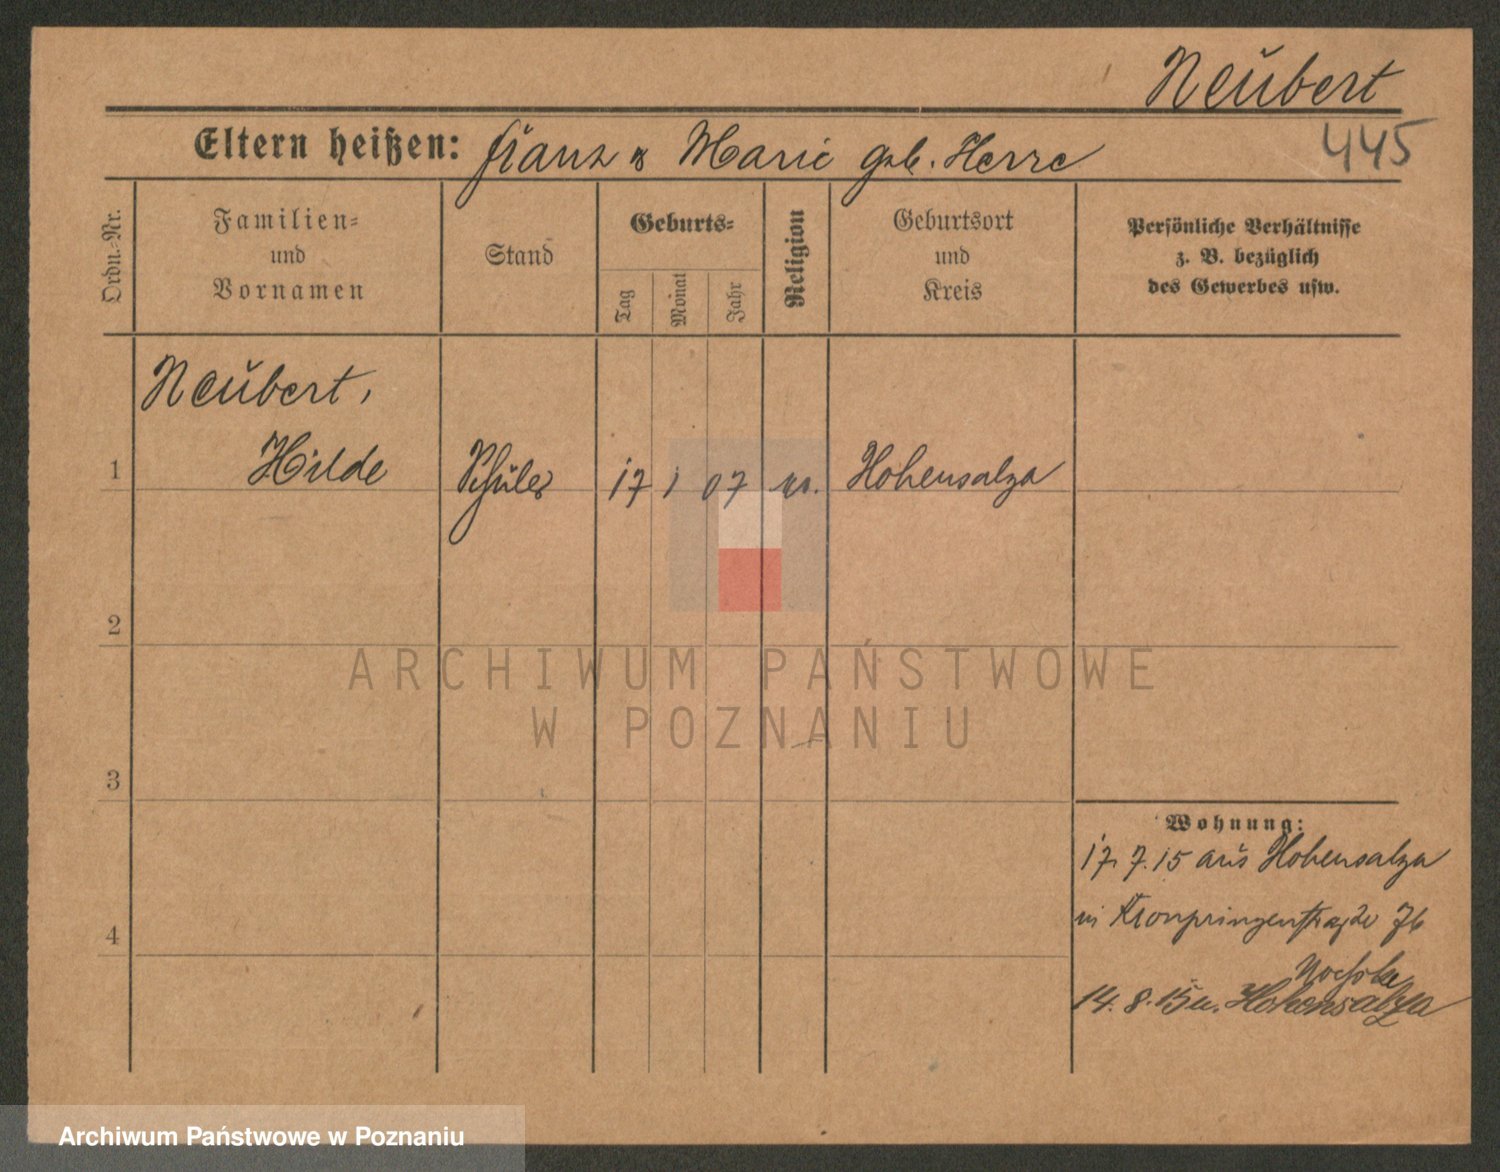 Neubert
445
Eltern heißen: Franz & Marie geb. Herre
Ordn.-Nr.
Familien-
und
Vornamen
Stand
Geburts-
Tag
Monat
Jahr
Religion
Geburtsort
und
Kreis
Persönliche Verhältnisse
z. B. bezüglich
des Gewerbes usw.
Neubert,
1 Hilde Schüler 17 1 07 Hohensalza
2
ARCHIWUM PAŃSTWOWE
W POZNANIU
3
Wohnung:
17.7.15 aus Hohensalza
in Kronprinzenstraße 76
4
14.8.15 n. Hohensalza
Archiwum Państwowe w Poznaniu